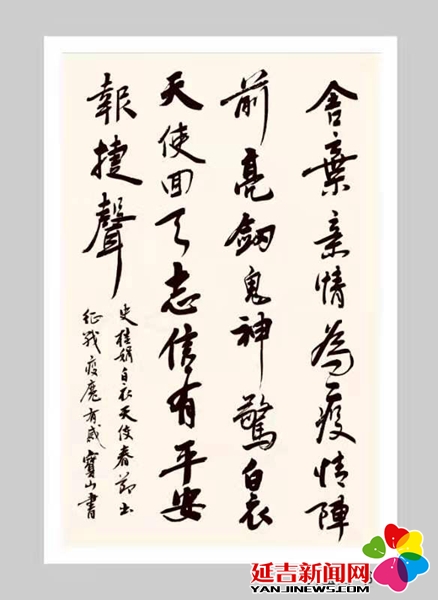 舍棄亲情為疫情陣
前亮劍鬼神驚白衣
天使回天志信有平安
報捷聲
史桂娟白衣天使春节出
征战疫魔有感寶山書
延吉新闻网
WWW.YANJINEWS.COM